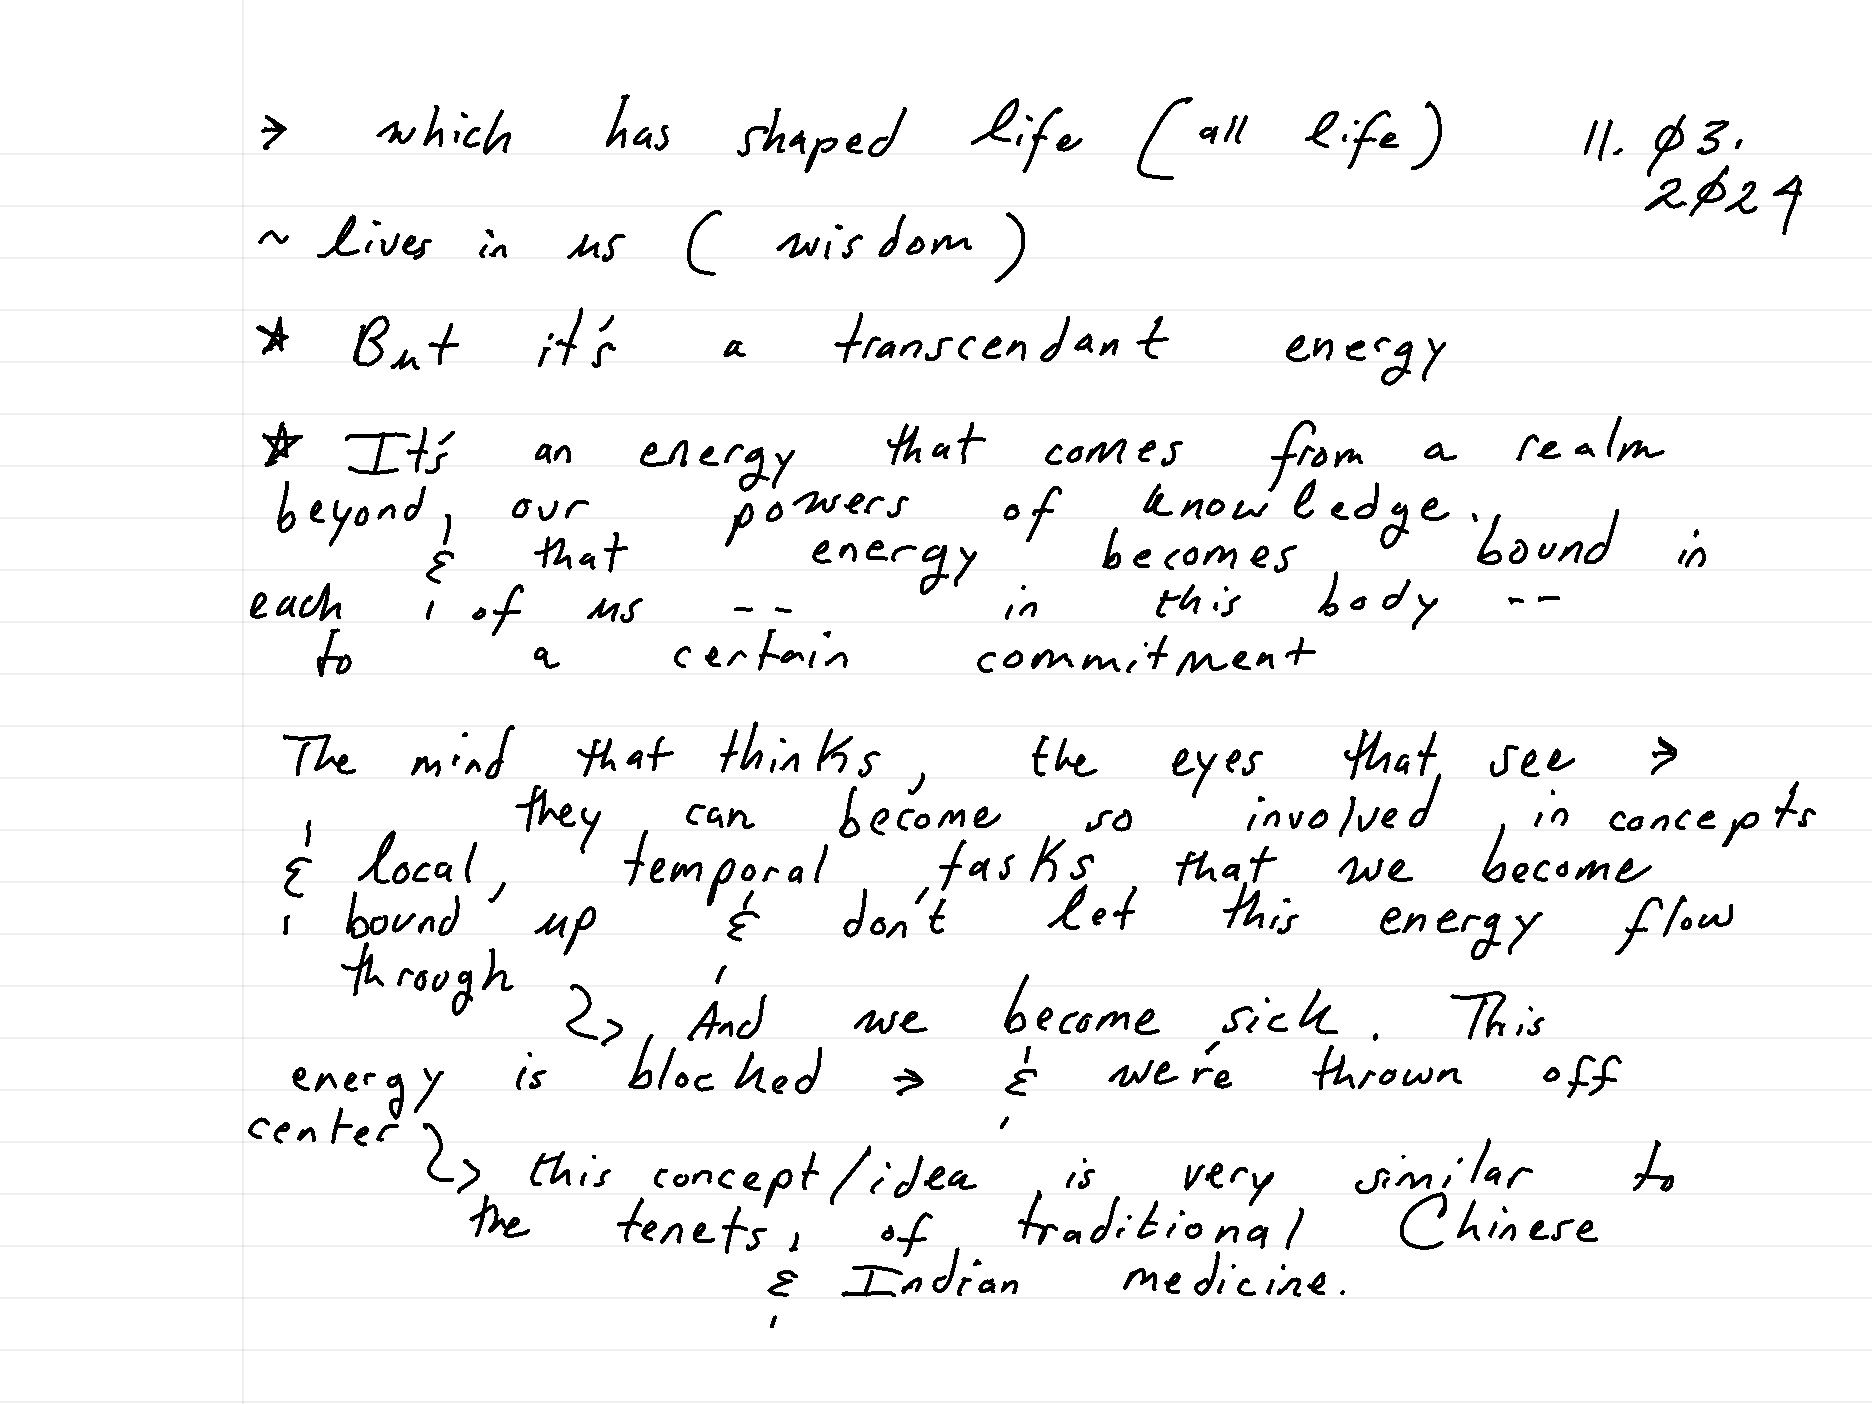 → which has shaped life (all life) 11. ø3.
2ø24
~ lives in us ( wisdom )
☆ But it's a transcendant energy
☆ It's an energy that comes from a realm
beyond our powers of knowledge.
& that energy becomes bound in
each of us -- in this body --
to a certain commitment
The mind that thinks, the eyes that see →
they can become so involved in concepts
& local, temporal tasks that we become
bound up & don't let this energy flow
through
↳ And we become sick. This
energy is blocked → & we're thrown off
center
↳ this concept/idea is very similar to
the tenets of traditional Chinese
& Indian medicine.